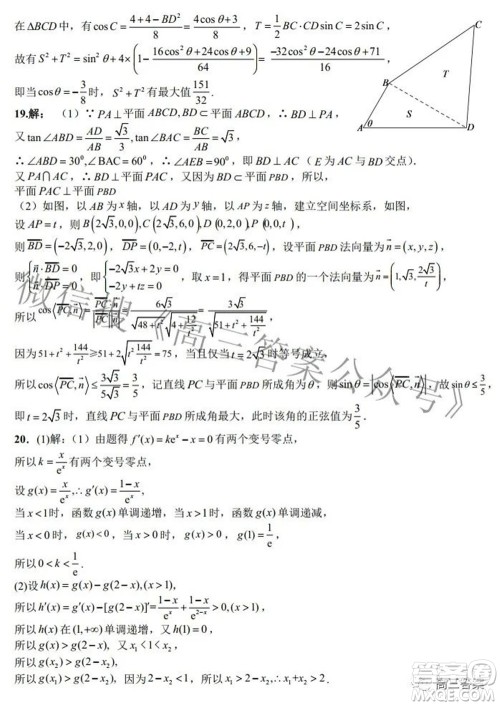 在△BCD中，有cosC = (4+4−BD²)/8 = (4cosθ+3)/8， T = (1/2)BC·CD sinC = 2sinC，
故有 S²+T² = sin²θ+4×(1−(16cos²θ+24cosθ+9)/64) = (−32cos²θ−24cosθ+71)/16，
即当cosθ=−3/8时，S²+T²有最大值151/32.
C
B
T
S
A
θ
D
19.解：（1）∵PA⊥平面ABCD,BD⊂平面ABCD，∴BD⊥PA，
又tan∠ABD=AD/AB=√3/3,tan∠BAC=BC/AB=√3，
∴∠ABD=30⁰,∠BAC=60⁰，∴∠AEB=90⁰，即BD⊥AC（E为AC与BD交点）.
又PA∩AC，∴BD⊥平面PAC，又因为BD⊂平面PBD，所以，
平面PAC⊥平面PBD
（2）如图，以AB为x轴，以AD为y轴，以AP为z轴，建立空间坐标系，如图，
设AP=t，则B(2√3,0,0),C(2√3,6,0),D(0,2,0),P(0,0,t)，
则BD=(−2√3,2,0)，DP=(0,−2,t)，PC=(2√3,6,−t)，设平面PBD法向量为n=(x,y,z)，
则{n·BD=0 n·DP=0，即{−2√3x+2y=0 −2y+tz=0，取x=1，得平面PBD的一个法向量为n=(1,√3,2√3/t)，
所以cos⟨PC,n⟩=PC·n/|PC||n|=6√3/(√(48+t²)√(4+12/t²))=3√3/√(51+t²+144/t²)，
因为51+t²+144/t²≥51+2√(t²·144/t²)=75，当且仅当t=2√3时等号成立，
所以cos⟨PC,n⟩≤3√3/5√3=3/5，记直线PC与平面PBD所成角为θ，则sinθ=|cos⟨PC,n⟩|，故sinθ≤3/5，
即t=2√3时，直线PC与平面PBD所成角最大，此时该角的正弦值为3/5.
20.(1)解：（1）由题得f′(x)=keˣ−x=0有两个变号零点，
所以k=x/eˣ有两个变号零点，
设g(x)=x/eˣ,∴g′(x)=(1−x)/eˣ，
当x<1时，函数g(x)单调递增，当x>1时，函数g(x)单调递减，
当x<0时，g(x)<0，当x>0时，g(x)>0，g(1)=1/e，
所以0<k<1/e.
(2)设h(x)=g(x)−g(2−x),(x>1)，
所以h′(x)=g′(x)−[g(2−x)]′=(1−x)/eˣ+(x−1)/e²⁻ˣ>0,(x>1)，
所以h(x)在(1,+∞)单调递增，又x₁<1<x₂，
所以g(x₂)>g(2−x₂)，
所以g(x₁)>g(2−x₂)，因为2−x₂<1，所以x₁>2−x₂,∴x₁+x₂>2.
微信搜《高三答案公众号》
高三答案